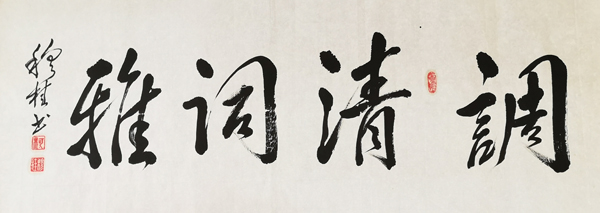 調清詞雅
穆桂书